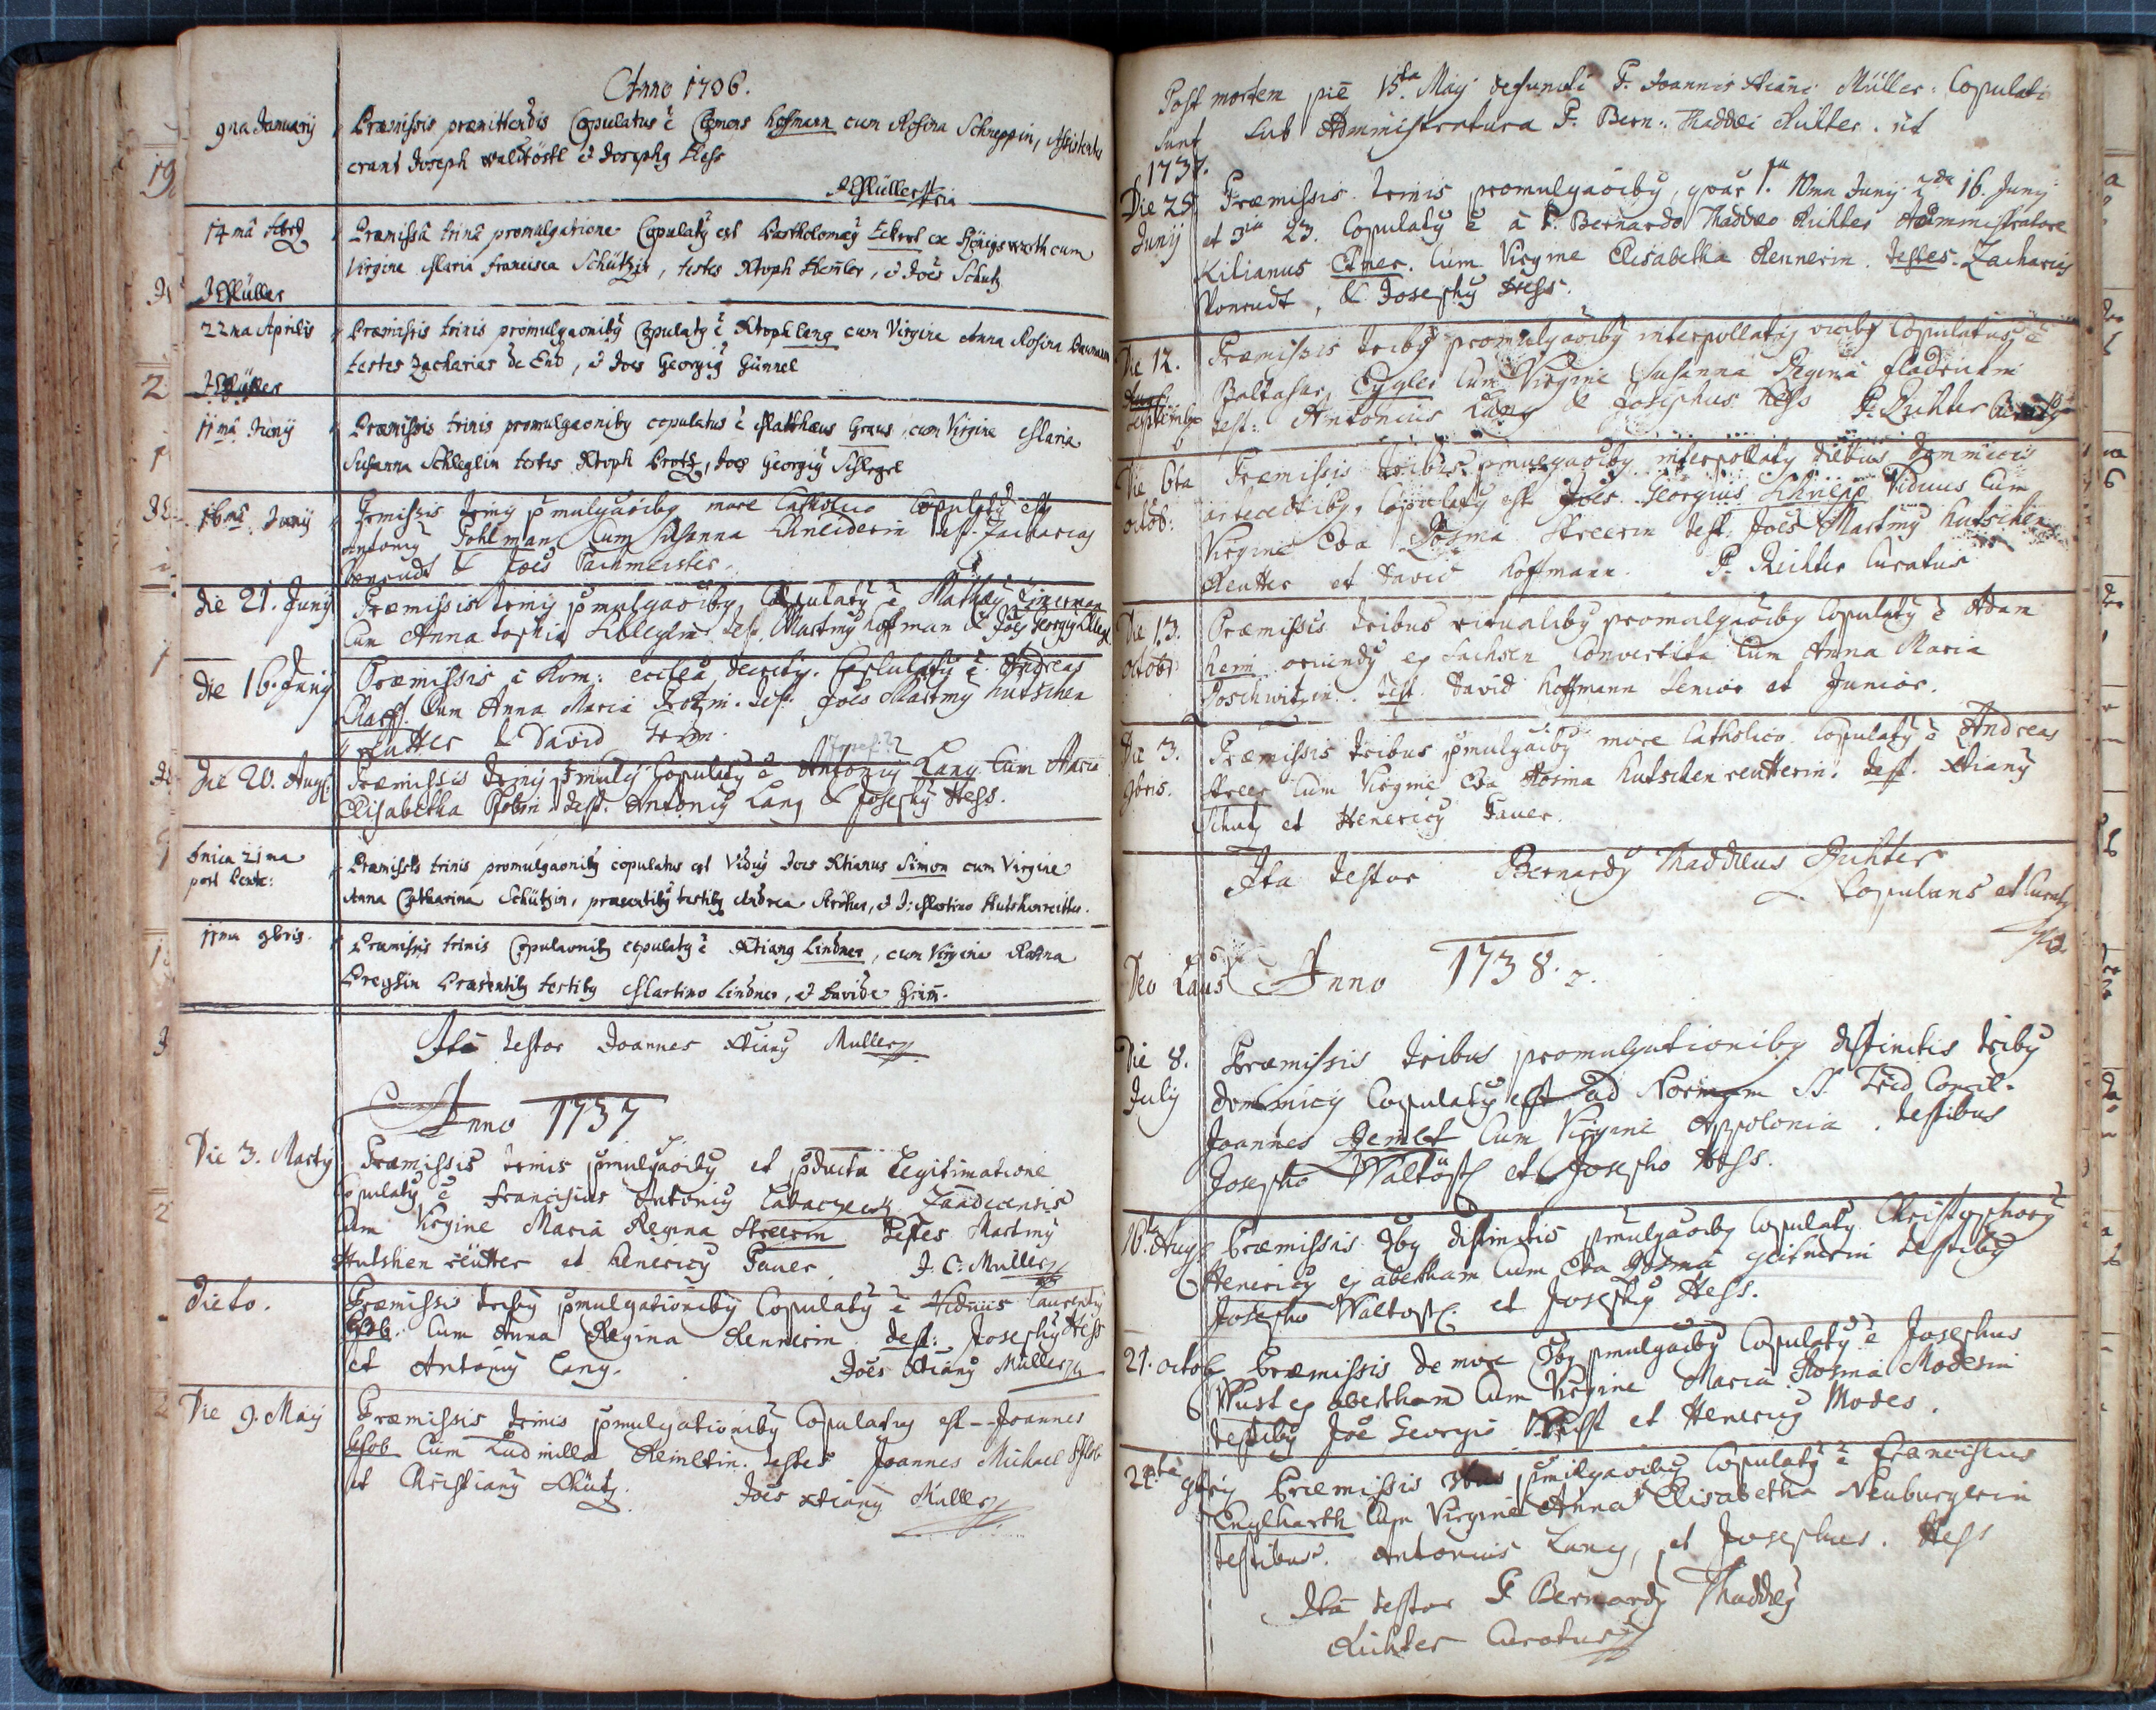 Anno 1736.
9na January Præmissis præmittendis Copulatus ē Clemens Hofmann cum Rosina Schneppin, Assistentes
erant Joseph Waltöstl et Josephq Hess
JCMüller
14mâ Præmissâ trinâ promulgatione Copulatq est Bartholomæq Eckert ex Königswarth cum
Virgine Maria Francisca Schützin, testes Xtoph Hemler, et Joes Schutz
JCMüller
22na Aprilis Præmissis trinis promulgaonibq Copulatq ē Xtoph Lang cum Virgine Anna Rosina
testes Zacharias de End, et Joes Georgiq Günnel
JCMüller
11mâ Junij Præmissis trinis promulgaonibq copulatus ē Matthæus Graus, cum Virgine Maria
Susanna Schleglin testes Xtoph Brotz, Joes Georgiq Schlegel
16mâ Junij Præmissis trinis pmulgaoibq more Catholico Copulatq est
Antoniq Pohlman Cum Susanna Schneiderin test. Zacharias
Konrudt & Joes Pachmeister.
die 21. Junij Præmissis trinis pmulgaoibq Copulatq ē Mathæq Zimerman
Cum Anna Sophia Schleglin. test. Martinq Hoffman & Joes Georgq Schlegl
die 16. Junij Præmissis a Rom: ecclea decretis. Copulatq ē Andreas
Cum Anna Maria test. Joes Martinq Kutschen
reutter & David
die 20. Aug. Præmissis trinis pmulg: Copulatq ē Antoniq Lang Cum Maria
Elisabetha test. Antoniq Lang & Josephq Hess.
Dnica 21ma Præmissis trinis promulgaonibq copulatus est Viduq Joes Xtianus Simon cum Virgine
post Pente: Anna Catharina Schützin, præsentibq testibq Andrea, et J: Martino Kutschenreitter.
11ma 9bris. Præmissis trinis Copulaonibq copulatq ē Xtianq Lindner, cum Virgine Rosina
Preglin Præsentibq testibq Martino Lindner, et Davide Grim̄.
Ita testor Joannes Xtianq Muller
Anno 1737
Die 3. Martij Præmissis trinis pmulgaoibq et pducta Legitimatione
Copulatq ē Franciscus Antoniq
Cum Virgine Maria Regina Streerin Testes Martinq
Kutshenreutter et Henericq Fauer. J: C: Muller
Dieto. Præmissis tribq pmulgationibq Copulatq ē Viduus Laurentiq
Cum Anna Regina Rennerin. test: Josephq Hess
et Antoniq Lang. Joes Xtianq Müller
Die 9. Maij Præmissis trinis pmulgationibq Copulatus est - Joannes
Cum Ludmilla testes Joannes Michael
et Christianq Schütz. Joes Xtianq Muller
Post mortem piē 15ta Maij defuncti P. Joannis Xtiani Müller: Copulati
Sunt Sub Administratura P. Bern: Thaddæi Richter. ut
1737.
Die 25 Præmissis trinis promulgaoibq, quar 1a 10ma Junij 2da 16. Junij
Junij et 3tia 23. Copulatq ē à P. Bernardo Thaddæo Richter Administratore
Kilianus Elmer. Cum Virgine Elisabetha Rennerin. testes. Zacharias
Konrudt, & Josephq Hess.
Die 12. Præmissis tribq promulgaoibq interpollatis vicibq Copulatus ē
Septembr Baltasar Cum Virgine Susanna Regina
test: Antonius Lang & Josephus Hess P. Richter
Die 6ta Præmissis tribus pmulgaoibq interpollatq diebus Dominicis
octob: antecedtibq, Copulatq est Joes Georgius Schnepp Viduus Cum
Virgine Eva Rosina Streerin test. Joes Martinq Kutschen
Reutter et David Hoffmann. P. Richter Curatus
Die 13. Præmissis tribus ritualibq promulgaoibq Copulatq ē Adam
octobr oriundq ex Sachsen Convertita Cum Anna Maria
Poschwitzin. test. David Hoffmann Senior et Junior.
Die 3. Præmissis tribus pmulgaoibq more Catholico Copulatq ē Andreas
9bris. Streer Cum Virgine Eva Rosina Kutschenreutterin. test. Xtianq
Schutz et Henericq Fauer.
Ita testor Bernardq Thaddæus Richter
Copulans et Curatq
Deo Laus Anno 1738.
Die 8. Præmissis tribus promulgationibq distinctis tribq
July dominicis Copulatq est ad Normam SS. Trid Concil.
Joannes Cum Virgine Appolonia. testibus
Josepho Waltöstl et Josepho Hess.
16. Augq Præmissis 3bq distinctis pmulgaoibq Copulatq. Christophorq
Henericq ex abertham Cum Eva Rosina testibq
Josepho Waltostl. et Josephq Hess.
21. octob Præmissis de more 3bq pmulgaoibq Copulatq ē Josephus
Wust ex abertham Cum Virgine Maria Rosina Moderin
testibq Joe Georgio Wust et Henericq Modes.
9bris Præmissis 3bus pmulgaoibq Copulatq ē Franciscus
Englharth Cum Virgine Anna Elisabetha Neuburgerin
testibus. Antonius Lang, et Josephus. Hess
Ita testor P. Bernardq Thaddæq
Richter Curatus